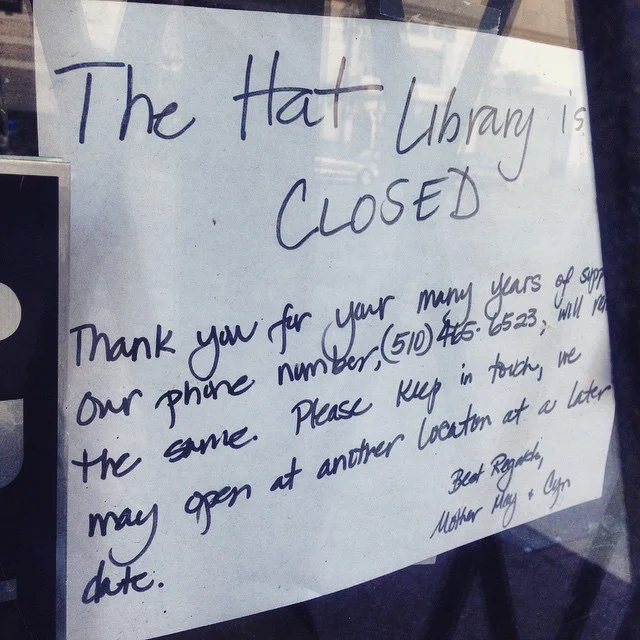 The Hat Library is
CLOSED
Thank you for your many years of supp
Our phone number, (510) 465-6523, will re
the same. Please keep in touch, we
may open at another locaton at a later
date.
Best Regards,
Mother May & Cyn